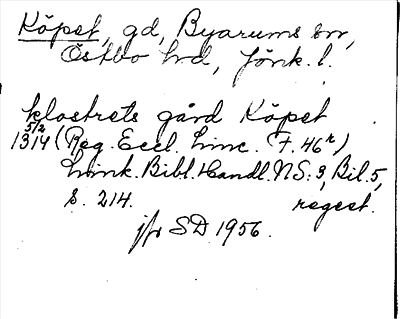 Köpet, gd, Byarums sn,
Östbo hd, Jönk. l.
klostrets gård Köpet
5/2
1314 (Reg. Eccl. Linc. F. 46r)
Link. Bibl. Handl. NS. 3, Bil. 5,
s. 214. regest.
jfr SD 1956.